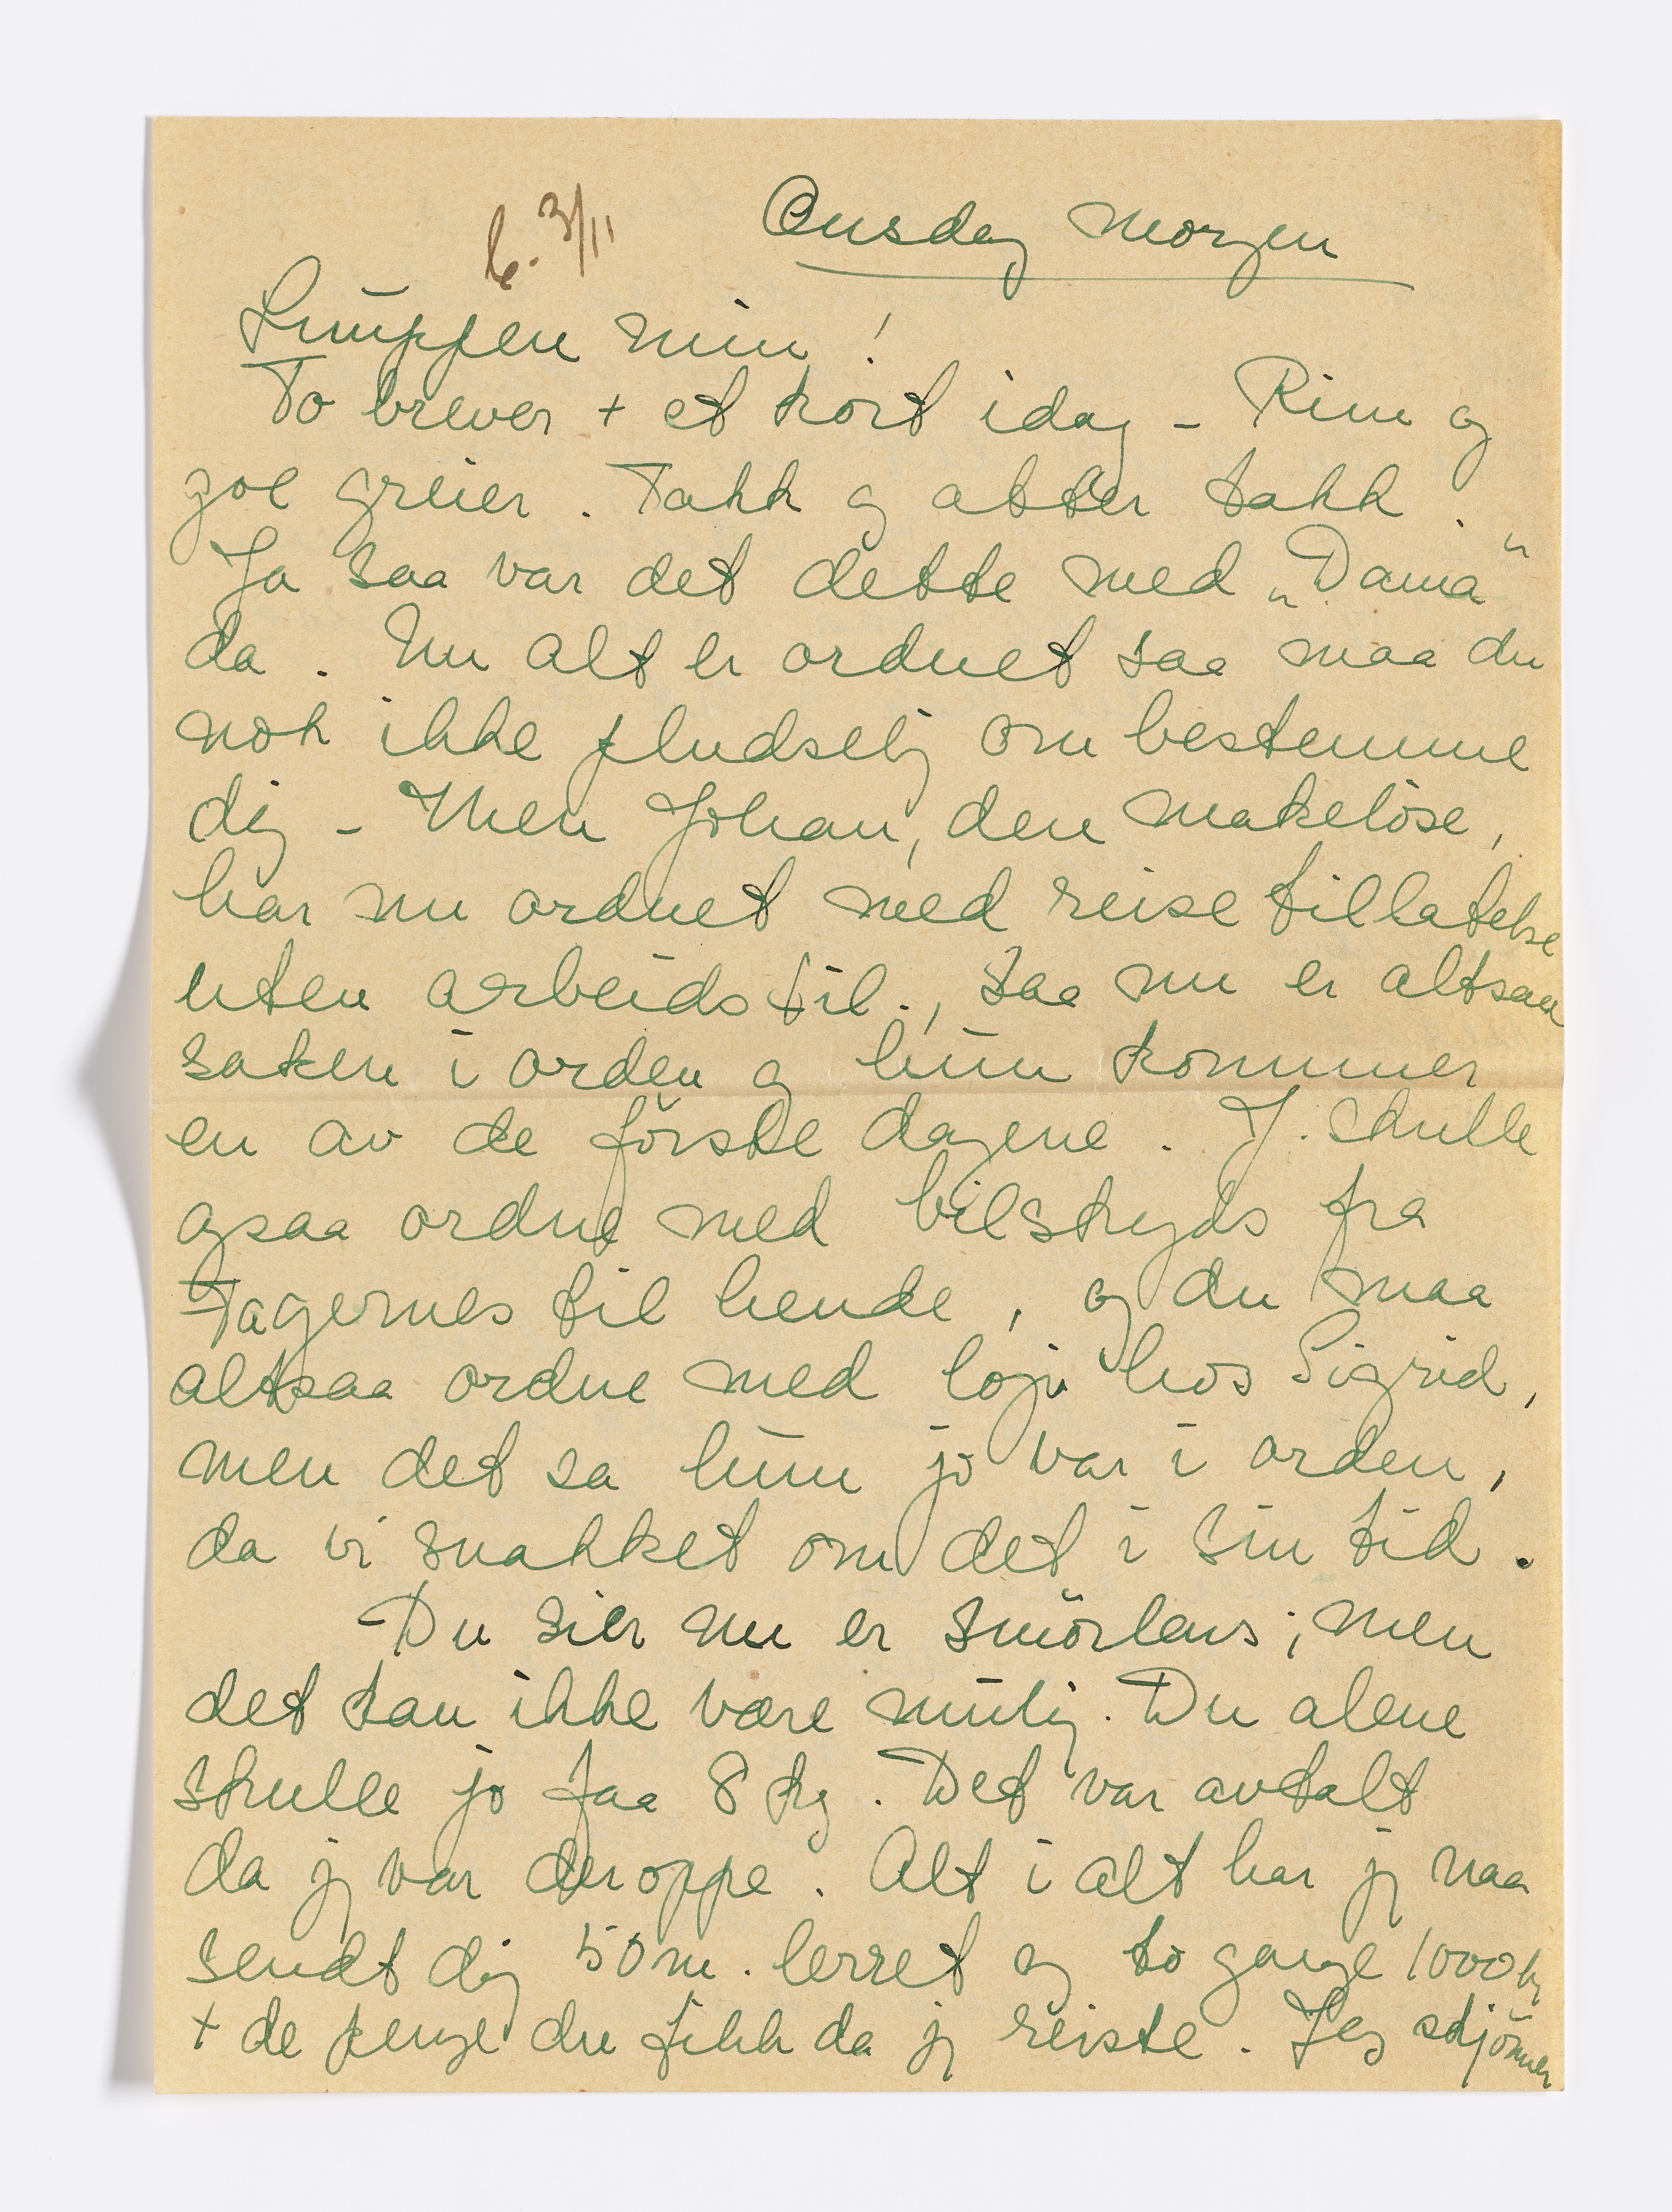 b. 3/11
Onsdag morgen
Luppen min!
To brever + et kort idag - Rim og
goe greier. Takk og atter takk.
Ja saa var det dette med „Dama"
da. Nu alt er ordnet saa maa du
nok ikke pludselig om bestemme
dig - Men Johan, den makelöse,
har nu ordnet med reise tillatelse
uten arbeids til., saa nu er altsaa
saken i orden og hun kommer
en av de förste dagene. J. skulle
ogsaa ordne med bilskyds fra
Fagernes til hende, og du maa
altsaa ordne med losji hos Sigrid,
men det sa hun jo var i orden,
da vi snakket om det i sin tid.
Du sier nu er smörlaus; men
det kan ikke være mulig. Du alene
skulle jo faa 8 kg. Det var avtalt
da jg var der oppe. Alt i alt har jg naa
sendt dig 50 m. lerret og to gange 1000 kr
+ de penge du fikk da jg reiste. Jeg skjönner